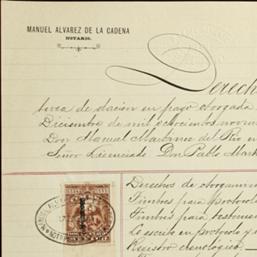 MANUEL ALVAREZ DE LA CADENA
NOTARIO.
Derech
linea de dacion en pago otorgada
Diciembre de mil ochocientos nove
Don Manuel Martinez del Rio en
Señor Licenciado Don Pablo Mart
Derechos de otorgamien
Timbres para protocolo
Timbres para testimon
Lo escrito en protocolo y
Registro cronologico
MANUEL ALVAREZ